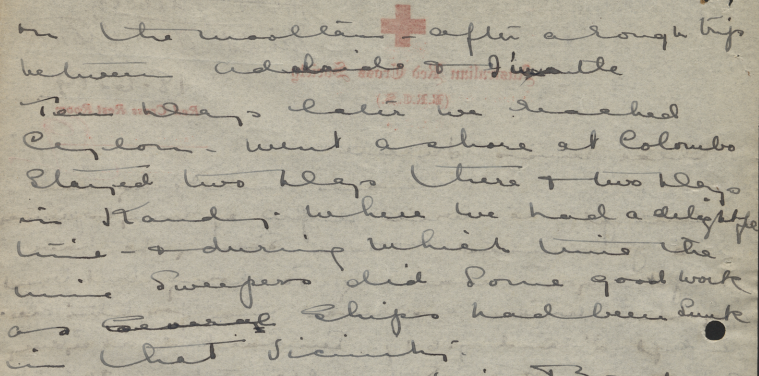 on the Mooltan - after a rough trip
between Adelaide & F'mantle
Ten days later we reached
Ceylon - went ashore at Colombo
Stayed two days there & two days
in Kandy. Where we had a delightful
time - & during which time the
mine Sweepers did Some good work
as several Ships had been Sunk
in that Vicinity.